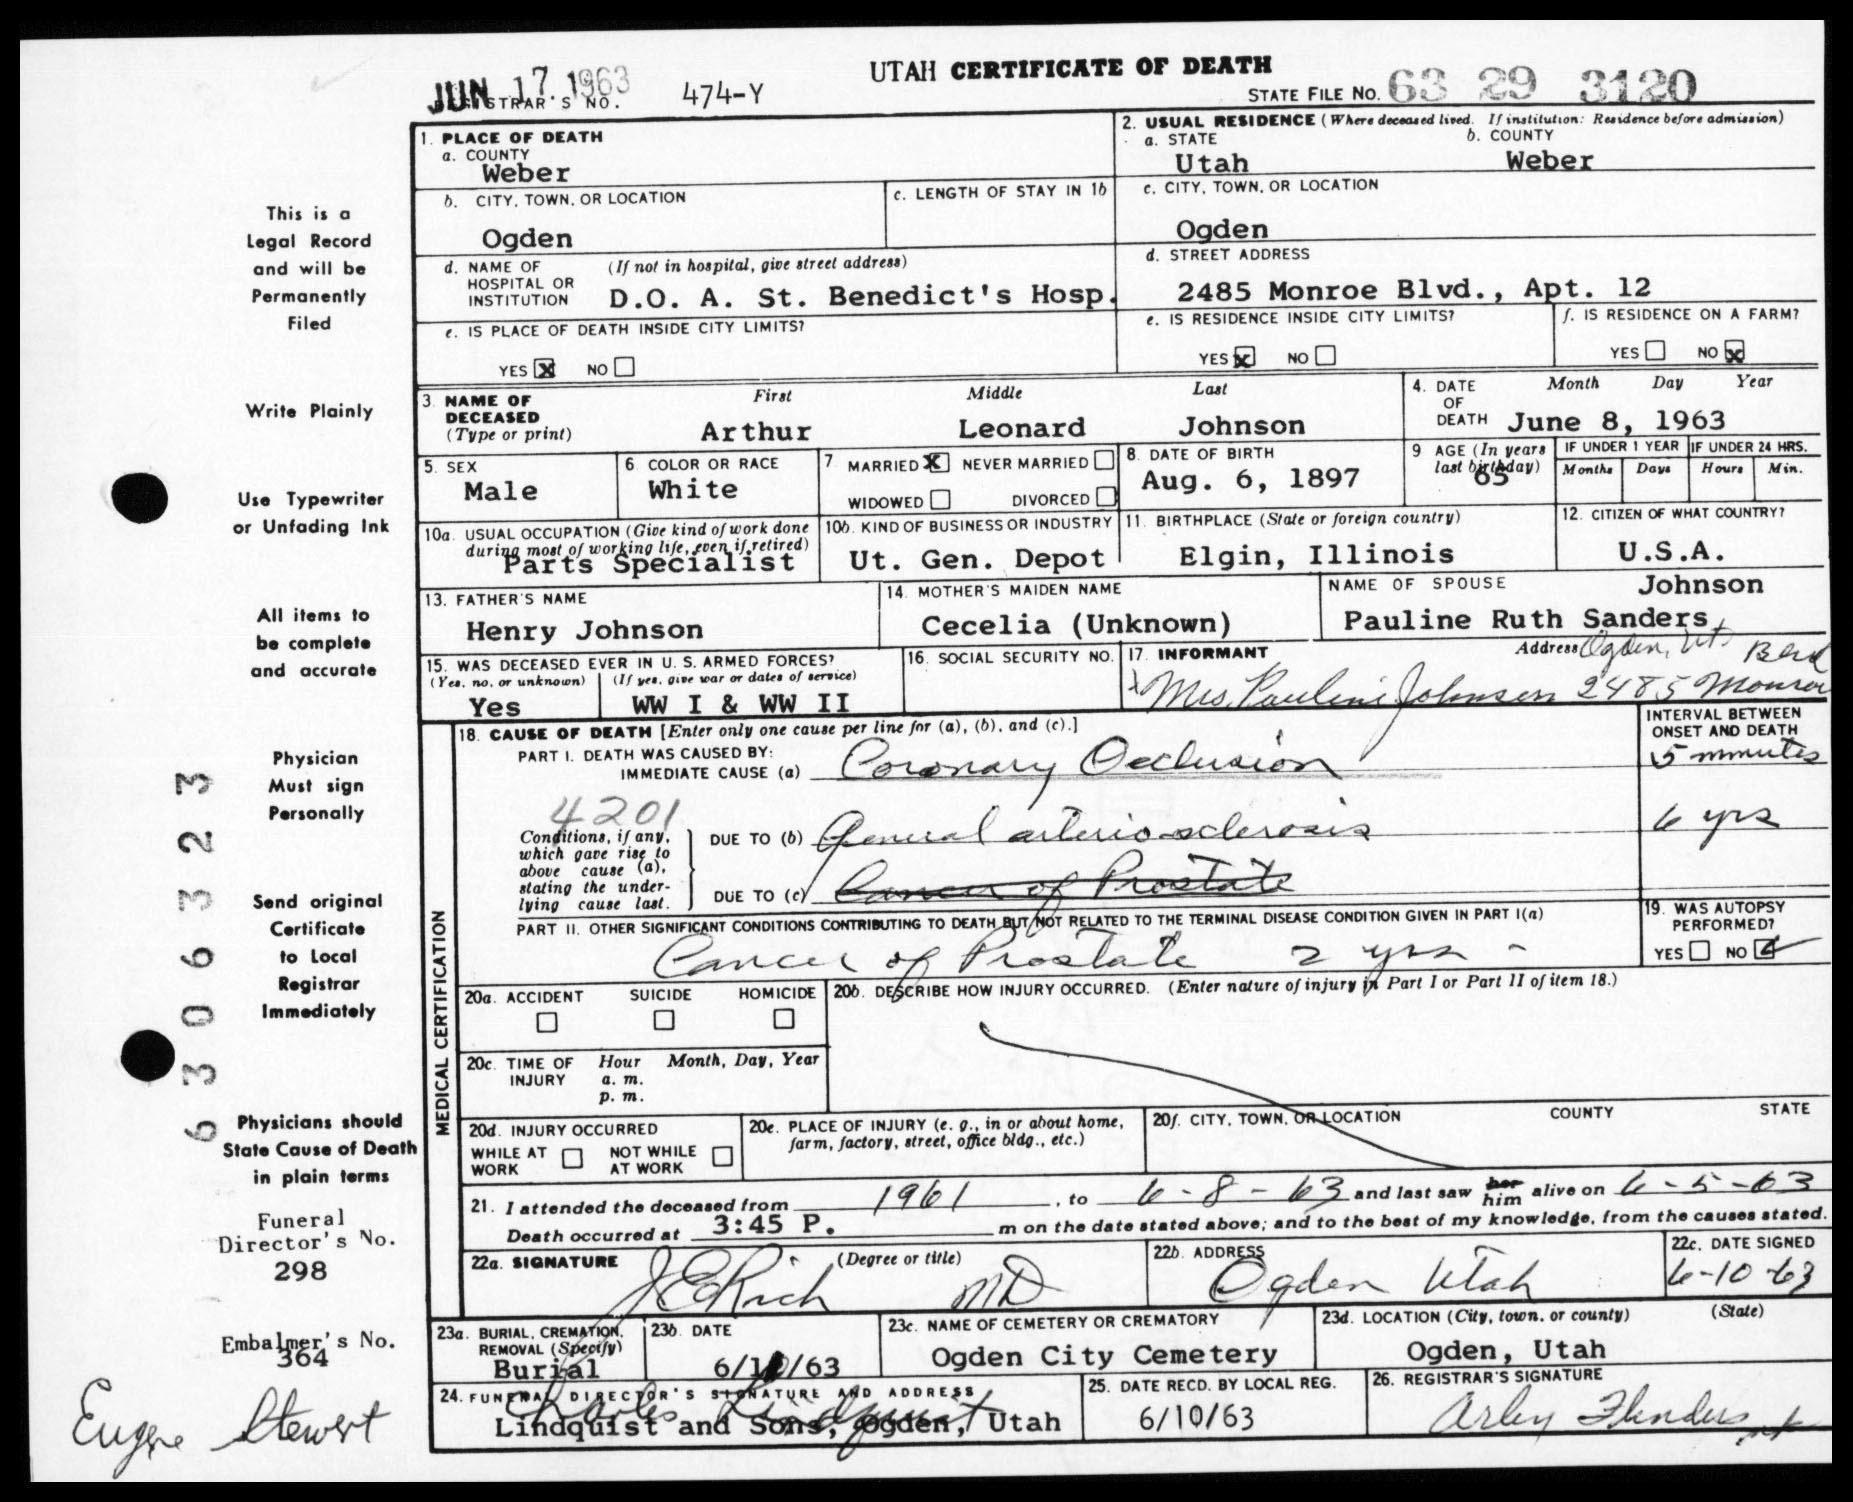 UTAH CERTIFICATE OF DEATH
JUN 17 1963
REGISTRAR'S NO. 474-Y
STATE FILE NO. 63 29 3120
1. PLACE OF DEATH
a. COUNTY
Weber
2. USUAL RESIDENCE (Where deceased lived. If institution: Residence before admission)
a. STATE b. COUNTY
Utah Weber
b. CITY, TOWN, OR LOCATION
Ogden
c. LENGTH OF STAY IN 1b
c. CITY, TOWN, OR LOCATION
Ogden
d. NAME OF HOSPITAL OR INSTITUTION (If not in hospital, give street address)
D.O. A. St. Benedict's Hosp.
d. STREET ADDRESS
2485 Monroe Blvd., Apt. 12
e. IS PLACE OF DEATH INSIDE CITY LIMITS?
YES X NO
e. IS RESIDENCE INSIDE CITY LIMITS?
YES X NO
f. IS RESIDENCE ON A FARM?
YES NO X
3. NAME OF DECEASED (Type or print)
First Middle Last
Arthur Leonard Johnson
4. DATE OF DEATH Month Day Year
June 8, 1963
5. SEX
Male
6. COLOR OR RACE
White
7. MARRIED X NEVER MARRIED
WIDOWED DIVORCED
8. DATE OF BIRTH
Aug. 6, 1897
9 AGE (In years last birthday)
65
IF UNDER 1 YEAR IF UNDER 24 HRS.
Months Days Hours Min.
10a. USUAL OCCUPATION (Give kind of work done during most of working life, even if retired)
Parts Specialist
10b. KIND OF BUSINESS OR INDUSTRY
Ut. Gen. Depot
11. BIRTHPLACE (State or foreign country)
Elgin, Illinois
12. CITIZEN OF WHAT COUNTRY?
U.S.A.
13. FATHER'S NAME
Henry Johnson
14. MOTHER'S MAIDEN NAME
Cecelia (Unknown)
NAME OF SPOUSE Johnson
Pauline Ruth Sanders
15. WAS DECEASED EVER IN U. S. ARMED FORCES?
(Yes, no, or unknown) (If yes, give war or dates of service)
Yes WW I & WW II
16. SOCIAL SECURITY NO.
17. INFORMANT Address Ogden, Ut.
Mrs. Pauline Johnson 2485 Monroe
18. CAUSE OF DEATH [Enter only one cause per line for (a), (b), and (c).]
INTERVAL BETWEEN ONSET AND DEATH
PART I. DEATH WAS CAUSED BY:
IMMEDIATE CAUSE (a) Coronary Occlusion 5 minutes
4201
Conditions, if any, which gave rise to above cause (a), stating the underlying cause last.
DUE TO (b) General arteriosclerosis 6 yrs
DUE TO (c) Cancer of Prostate
PART II. OTHER SIGNIFICANT CONDITIONS CONTRIBUTING TO DEATH BUT NOT RELATED TO THE TERMINAL DISEASE CONDITION GIVEN IN PART I(a)
Cancer of Prostate 2 yrs -
19. WAS AUTOPSY PERFORMED?
YES NO
20a. ACCIDENT SUICIDE HOMICIDE
20b. DESCRIBE HOW INJURY OCCURRED. (Enter nature of injury in Part I or Part II of item 18.)
20c. TIME OF INJURY Hour Month, Day, Year
a. m.
p. m.
20d. INJURY OCCURRED
WHILE AT WORK NOT WHILE AT WORK
20e. PLACE OF INJURY (e. g., in or about home, farm, factory, street, office bldg., etc.)
20f. CITY, TOWN, OR LOCATION COUNTY STATE
21. I attended the deceased from 1961, to 6-8-63 and last saw her him alive on 6-5-63
Death occurred at 3:45 P. m on the date stated above; and to the best of my knowledge, from the causes stated.
22a. SIGNATURE (Degree or title)
J E Rich MD
22b. ADDRESS
Ogden Utah
22c. DATE SIGNED
6-10-63
23a. BURIAL, CREMATION, REMOVAL (Specify)
Burial
23b. DATE
23c. NAME OF CEMETERY OR CREMATORY
Ogden City Cemetery
23d. LOCATION (City, town, or county) (State)
Ogden, Utah
24. FUNERAL DIRECTOR'S SIGNATURE AND ADDRESS
Charles Lindquist
Lindquist and Sons, Ogden, Utah
25. DATE RECD. BY LOCAL REG.
6/10/63
26. REGISTRAR'S SIGNATURE
MEDICAL CERTIFICATION
This is a
Legal Record
and will be
Permanently
Filed
Write Plainly
Use Typewriter
or Unfading Ink
All items to
be complete
and accurate
Physician
Must sign
Personally
Send original
Certificate
to Local
Registrar
Immediately
Physicians should
State Cause of Death
in plain terms
Funeral
Director's No.
298
Embalmer's No.
364
Eugene Stewart
6 3 0 6 3 3 2 3